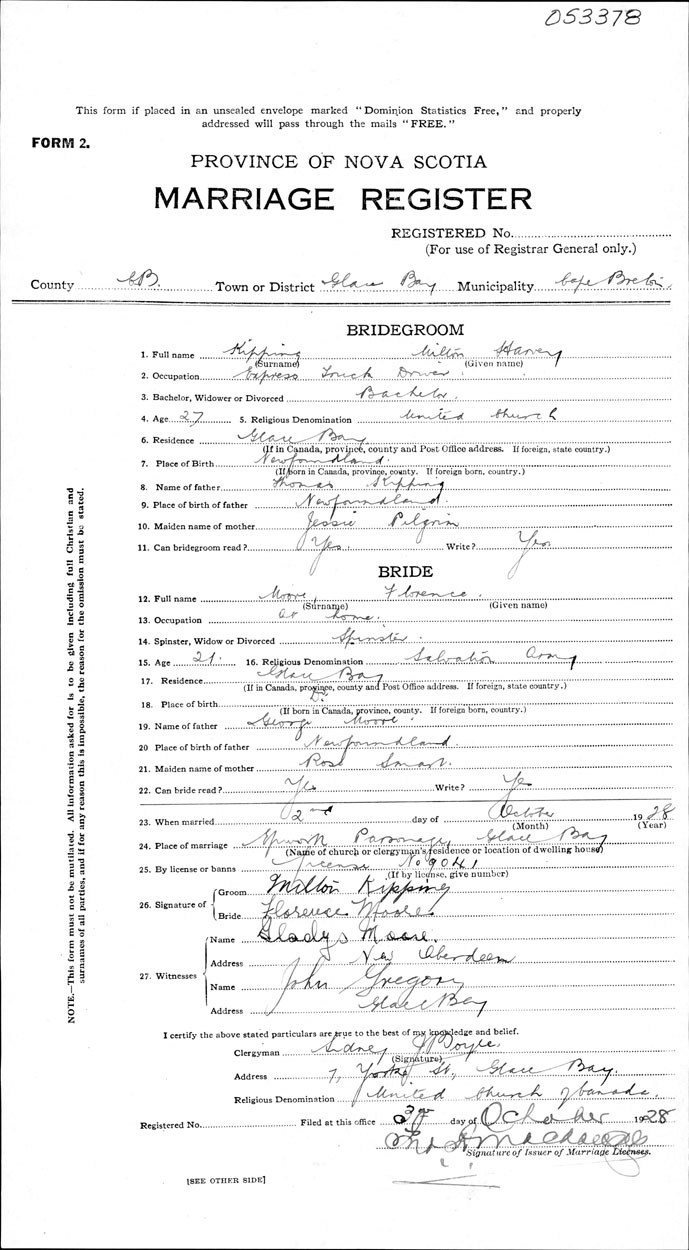 053378
This form if placed in an unsealed envelope marked "Dominion Statistics Free," and properly
addressed will pass through the mails "FREE."
FORM 2.
PROVINCE OF NOVA SCOTIA
MARRIAGE REGISTER
REGISTERED No.
(For use of Registrar General only.)
County C.B. Town or District Glace Bay Municipality Cape Breton
BRIDEGROOM
1. Full name Kipping Milton Harvey
(Surname) (Given name)
2. Occupation Express Truck Driver
3. Bachelor, Widower or Divorced Bachelor
4. Age 27 5. Religious Denomination United Church
6. Residence Glace Bay
(If in Canada, province, county and Post Office address. If foreign, state country.)
7. Place of Birth Newfoundland
(If born in Canada, province, county. If foreign born, country.)
8. Name of father Thomas Kipping
9. Place of birth of father Newfoundland
10. Maiden name of mother Jessie Pilgrim
11. Can bridegroom read? Yes Write? Yes
BRIDE
12. Full name Moore Florence
(Surname) (Given name)
13. Occupation at home
14. Spinster, Widow or Divorced Spinster
15. Age 21 16. Religious Denomination Salvation Army
17. Residence Glace Bay
(If in Canada, province, county and Post Office address. If foreign, state country.)
18. Place of birth Do
(If born in Canada, province, county. If foreign born, country.)
19. Name of father George Moore
20 Place of birth of father Newfoundland
21. Maiden name of mother Rose Smart
22. Can bride read? Yes Write? Yes
23. When married 2nd day of October 1928
(Month) (Year)
24. Place of marriage Parsonage, Glace Bay
(Name of church or clergyman's residence or location of dwelling house)
25. By license or banns License No 9041
(If by license, give number)
26. Signature of
Groom Milton Kipping
Bride Florence Moore
27. Witnesses
Name Gladys Moore.
Address New Aberdeen
Name John Gregory
Address Glace Bay
I certify the above stated particulars are true to the best of my knowledge and belief.
Clergyman Sidney W Boyle.
(Signature)
Address 7, York St., Glace Bay.
Religious Denomination United Church of Canada.
Registered No. Filed at this office day of October 1928
Signature of Issuer of Marriage Licenses.
[SEE OTHER SIDE]
NOTE.—This form must not be mutilated. All information asked for is to be given including full Christian and
surnames of all parties, and if for any reason this is impossible, the reason for the omission must be stated.